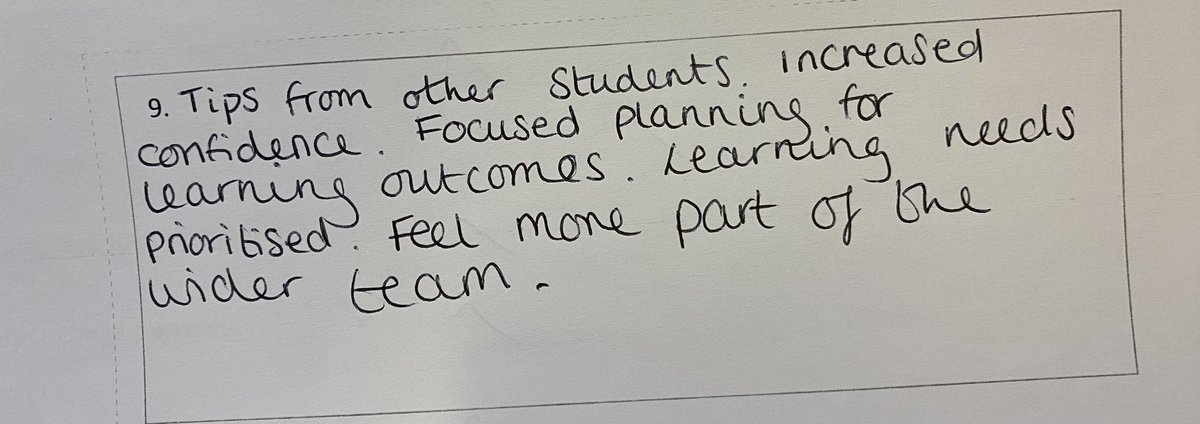 9. Tips from other Students. increased
confidence. Focused planning for
learning outcomes. Learning needs
prioritised. Feel more part of the
wider team.